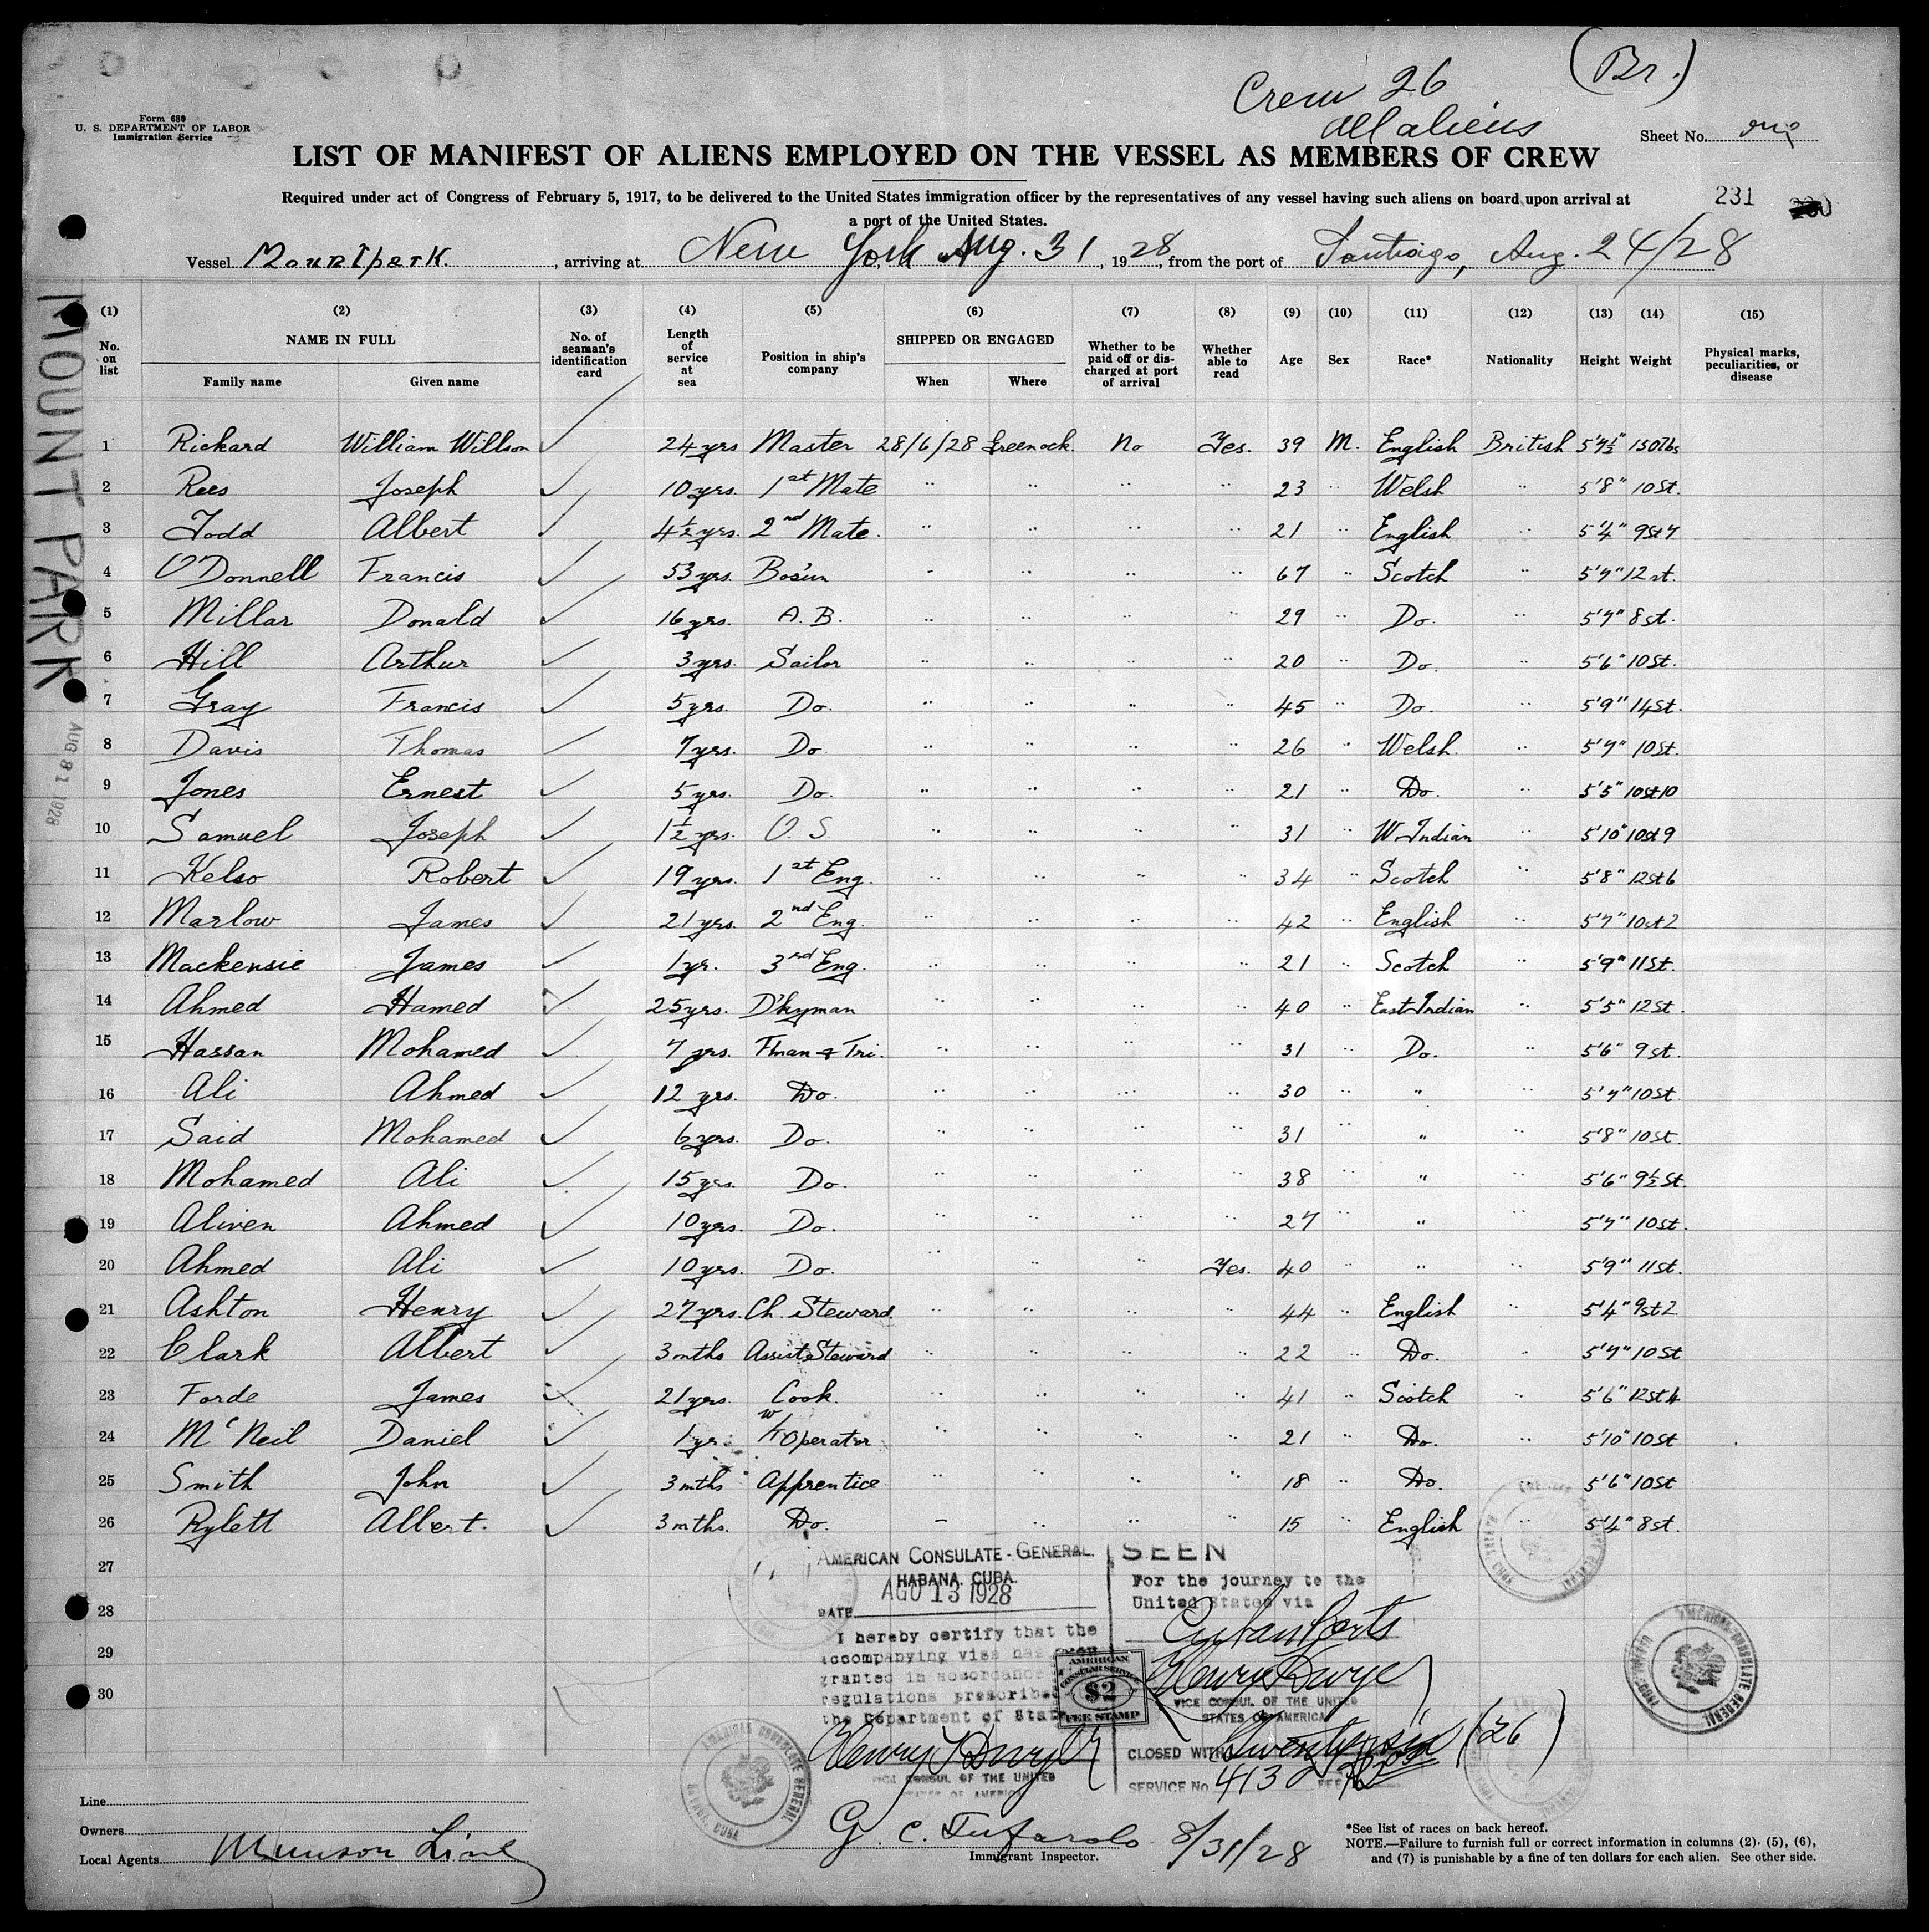 (Br.)
Crew 26
All aliens
Form 680
U. S. DEPARTMENT OF LABOR
Immigration Service
Sheet No.
LIST OF MANIFEST OF ALIENS EMPLOYED ON THE VESSEL AS MEMBERS OF CREW
Required under act of Congress of February 5, 1917, to be delivered to the United States immigration officer by the representatives of any vessel having such aliens on board upon arrival at
a port of the United States.
231
Vessel Mountpark. , arriving at New York Aug. 31 , 1928 , from the port of Santiago, Aug. 24/28
MOUNT PARK
AUG 31 1928
(1) (2) (3) (4) (5) (6) (7) (8) (9) (10) (11) (12) (13) (14) (15)
No. on list NAME IN FULL Family name Given name No. of seaman's identification card Length of service at sea Position in ship's company SHIPPED OR ENGAGED When Where Whether to be paid off or discharged at port of arrival Whether able to read Age Sex Race* Nationality Height Weight Physical marks, peculiarities, or disease
1 Rickard William Willson ✓ 24 yrs Master 28/6/28 Greenock. No Yes. 39 M. English British 5'7½" 150 lbs
2 Rees Joseph ✓ 10 yrs. 1st Mate " " " " 23 " Welsh " 5'8" 10 St.
3 Todd Albert ✓ 4½ yrs. 2nd Mate. " " " " 21 " English " 5'4" 9St 7
4 O'Donnell Francis ✓ 53 yrs. Bos'un " " " " 67 " Scotch " 5'7" 12 st.
5 Millar Donald ✓ 16 yrs. A. B. " " " " 29 " Do. " 5'7" 8 st.
6 Hill Arthur ✓ 3 yrs. Sailor " " " " 20 " Do. " 5'6" 10 St.
7 Gray Francis ✓ 5 yrs. Do. " " " " 45 " Do. " 5'9" 14 St.
8 Davis Thomas ✓ 7 yrs. Do. " " " " 26 " Welsh. " 5'7" 10 St.
9 Jones Ernest ✓ 5 yrs. Do. " " " " 21 " Do. " 5'5" 10 St 10
10 Samuel Joseph ✓ 1½ yrs. O. S. " " " " 31 " W. Indian " 5'10" 10 st 9
11 Kelso Robert ✓ 19 yrs. 1st Eng. " " " " 34 " Scotch " 5'8" 12 St 6
12 Marlow James ✓ 21 yrs. 2nd Eng. " " " " 42 " English " 5'7" 10 st 2
13 Mackensie James ✓ 1 yr. 3rd Eng. " " " " 21 " Scotch " 5'9" 11 St.
14 Ahmed Hamed ✓ 25 yrs. D'kyman " " " " 40 " East Indian " 5'5" 12 St.
15 Hassan Mohamed ✓ 7 yrs. F'man & Tri. " " " " 31 " Do. " 5'6" 9 st.
16 Ali Ahmed ✓ 12 yrs. Do. " " " " 30 " " " 5'7" 10 St
17 Said Mohamed ✓ 6 yrs. Do. " " " " 31 " " " 5'8" 10 St.
18 Mohamed Ali ✓ 15 yrs. Do. " " " " 38 " " " 5'6" 9½ St.
19 Aliven Ahmed ✓ 10 yrs. Do. " " " " 27 " " " 5'7" 10 St.
20 Ahmed Ali ✓ 10 yrs. Do. " " " Yes. 40 " " " 5'9" 11 St.
21 Ashton Henry ✓ 27 yrs. Ch. Steward " " " " 44 " English " 5'4" 9 st 2
22 Clark Albert ✓ 3 mths Assist Steward " " " " 22 " Do. " 5'7" 10 St
23 Forde James ✓ 21 yrs. Cook " " " " 41 " Scotch " 5'6" 12 St 4
24 McNeil Daniel ✓ 1 yr. W/T Operator " " " " 21 " Do. " 5'10" 10 St
25 Smith John ✓ 3 mths Apprentice " " " " 18 " Do. " 5'6" 10 St
26 Rylett Albert. ✓ 3 mths. Do. " " " " 15 " English " 5'4" 8 st.
27
28
29
30
AMERICAN CONSULATE-GENERAL.
HABANA. CUBA.
DATE AGO 13 1928
I hereby certify that the
accompanying visa has been
granted in accordance
regulations prescribed
the Department of State
Henry T Dwyer
VICE CONSUL OF THE UNITED
STATES OF AMERICA
SEEN
For the journey to the
United States via
Cuban Ports
Henry T Dwyer
VICE CONSUL OF THE UNITED
STATES OF AMERICA
CLOSED WITH Twenty six (26)
SERVICE No. 4132 FEE
AMERICAN
CONSULAR SERVICE
$2
FEE STAMP
AMERICAN CONSULATE GENERAL
HABANA, CUBA
Line
Owners
Local Agents Munson Line
8/31/28
Immigrant Inspector.
*See list of races on back hereof.
NOTE.—Failure to furnish full or correct information in columns (2), (5), (6),
and (7) is punishable by a fine of ten dollars for each alien. See other side.